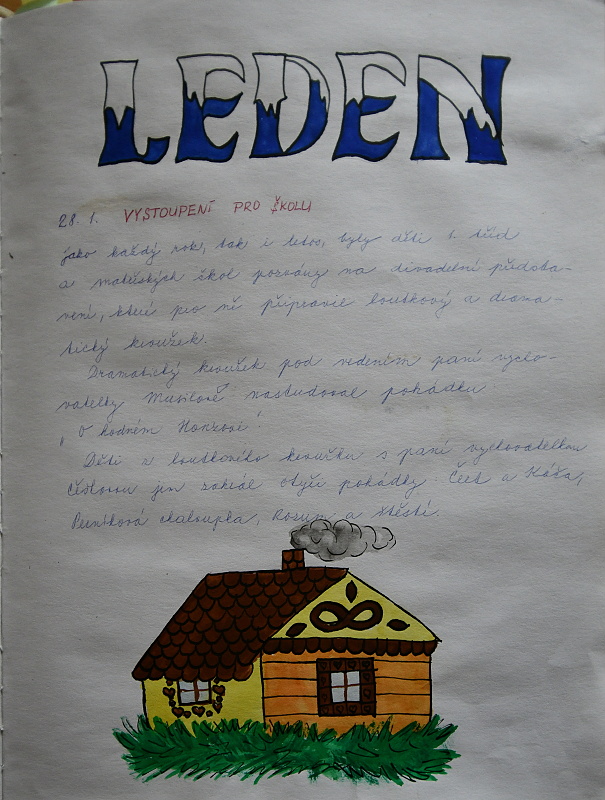 LEDEN
28. 1. VYSTOUPENÍ PRO ŠKOLU
Jako každý rok, tak i letos, byly děti 1. tříd
a mateřských škol pozvány na divadelní předsta-
vení, které pro ně připravil loutkový a drama-
tický kroužek.
Dramatický kroužek pod vedením paní vycho-
vatelky Musilové nastudoval pohádku
"O hodném Honzovi".
Děti z loutkového kroužku s paní vychovatelkou
jim zahrál pohádky. a
Perníková chaloupka, Rozum a štěstí.